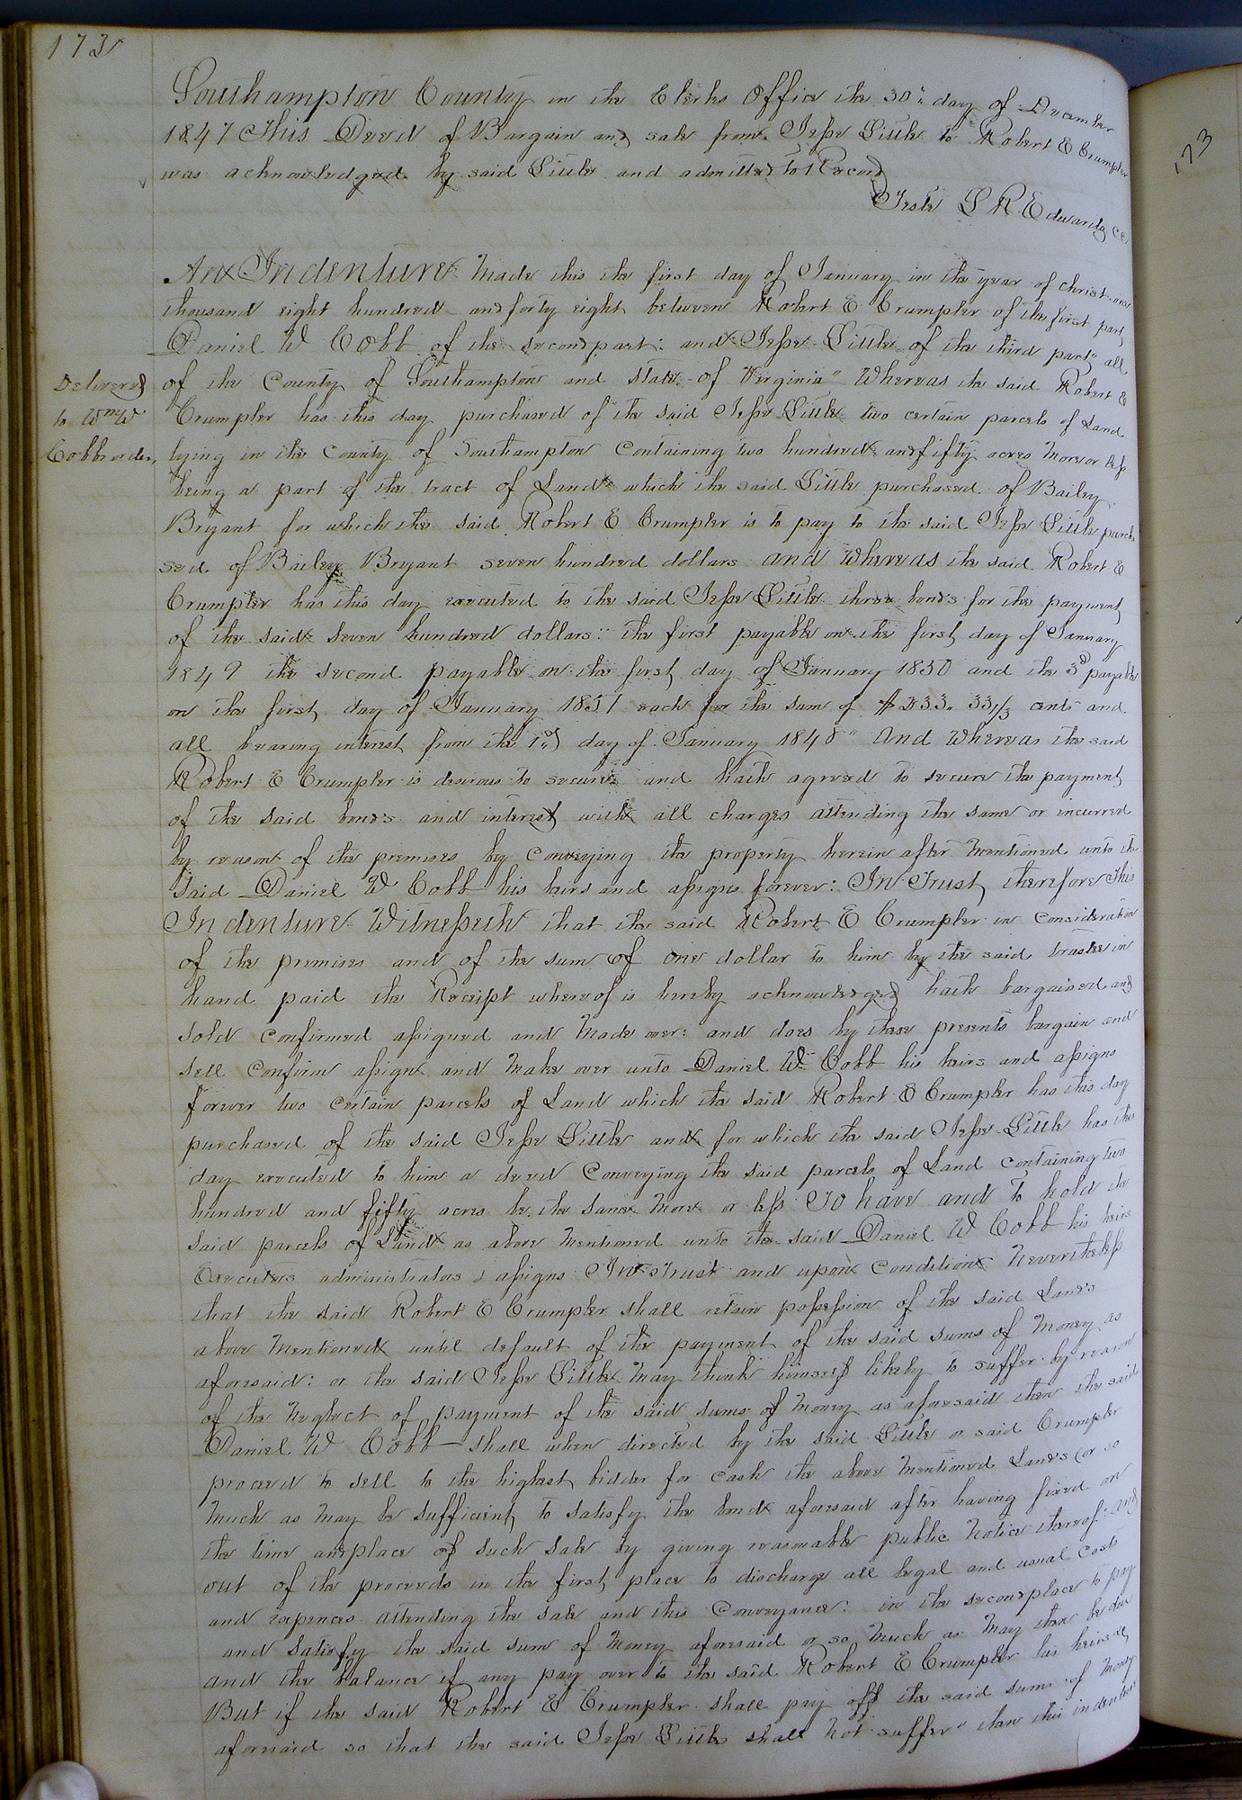 173
Southampton County in the Clerks Office the 30th day of December
1847 This Deed of Bargain and sale from Jesse Little to Robert E Crumpler
was acknowledged by said Little and admitted to Record
Teste L R Edwards CC
An Indenture Made this the first day of January in the year of Christ one
thousand eight hundred and forty eight between Robert E Crumpler of the first part
Daniel W Cobb of the second part: and Jesse Little of the third part" all
of the County of Southampton and state of Virginia" Whereas the said Robert E
Crumpler has this day purchased of the said Jesse Little two certain parcels of Land
lying in the County of Southampton Containing two hundred and fifty acres More or less
being a part of the tract of Land which the said Little purchased of Bailey
Bryant for which the said Robert E Crumpler is to pay to the said Jesse Little purcha
sed of Bailey Bryant seven hundred dollars and Whereas the said Robert E
Crumpler has this day executed to the said Jesse Little three bonds for the payment
of the said Seven hundred dollars: the first payable on the first day of January
1849 the second payable on the first day of January 1850 and the 3d payable
on the first day of January 1851 each for the sum of $233. 33 1/3 cents and
all bearing interest from the 1st day of January 1848" And Whereas the said
Robert E Crumpler is desirous to secure and hath agreed to secure the payment
of the said bonds and interest with all charges attending the same or incurred
by reason of the premises by Conveying the property herein after Mentioned unto the
said Daniel W Cobb his heirs and assigns forever: In Trust, therefore This
Indenture Witnesseth that the said Robert E Crumpler in Consideration
of the premises and of the sum of one dollar to him by the said trustee in
hand paid the Receipt whereof is hereby acknowledged hath bargained and
sold confirmed assigned and Made over: and does by these presents bargain and
sell Confirm assign and Make over unto Daniel W Cobb his heirs and assigns
forever two Certain parcels of Land which the said Robert E Crumpler has this day
purchased of the said Jesse Little and for which the said Jesse Little has this
day executed to him a deed Conveying the said parcels of Land Containing two
hundred and fifty acres be the same More or less To have and To hold the
said parcels of Land as above Mentioned unto the said Daniel W Cobb his heirs
Executors administrators & assigns In Trust and upon Condition Nevertheless
that the said Robert E Crumpler shall retain possession of the said Lands
above Mentioned until default of the payment of the said sums of Money as
aforesaid: or the said Jesse Little May think himself likely to suffer by reason
of the Neglect of payment of the said sums of Money as aforesaid then the said
Daniel W Cobb shall when directed by the said Little or said Crumpler
proceed to sell to the highest bidder for cash the above Mentioned Lands (or so
Much as May be sufficient to satisfy the bonds aforesaid after having fixed on
the time and place of such sale by giving reasonable public Notice thereof: and
out of the proceeds in the first place to discharge all legal and usual Costs
and expences attending the sale and this Conveyance: in the second place to pay
and Satisfy the said sum of Money aforesaid or so Much as May then be due
And the balance if any pay over to the said Robert E Crumpler his heirs &c
But if the said Robert E Crumpler shall pay off the said sums of Money
aforesaid so that the said Jesse Little shall Not suffer" then this indenture
Delivered
to Wm W
Cobbs order
173